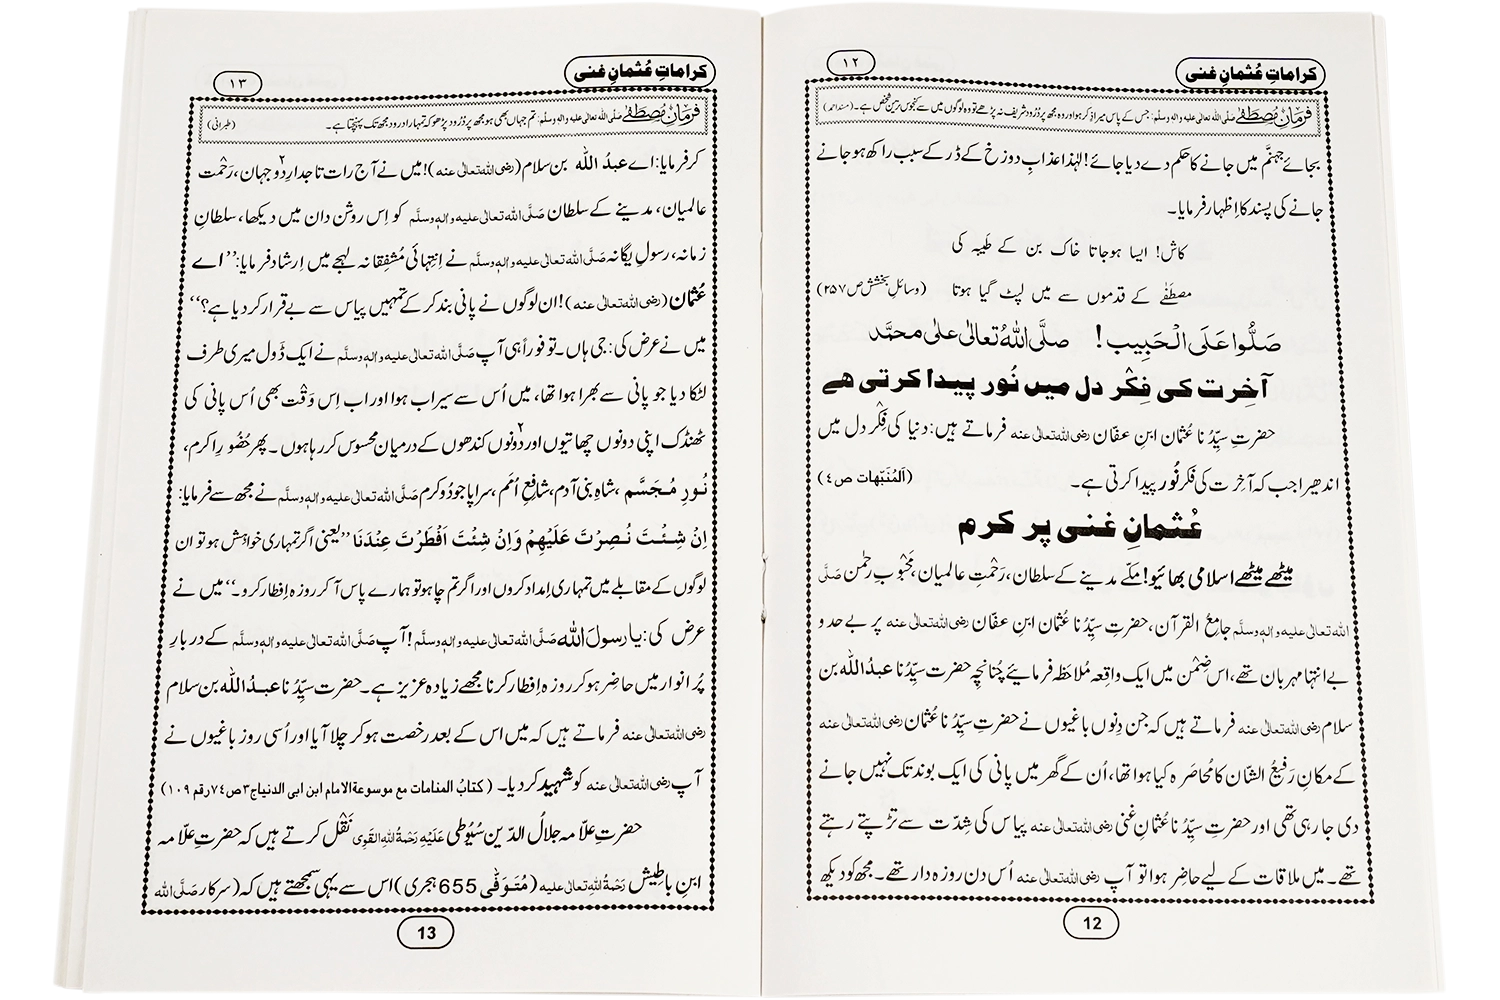 کراماتِ عُثمانِ غنی
١٢
فرمانِ مصطفےٰ صلَّی اللہ تعالیٰ علیہ واٰلہٖ وسلَّم: جس کے پاس میرا ذکر ہوا اور وہ مجھ پر دُرُود شریف نہ پڑھے تو وہ لوگوں میں سے کنجوس ترین شخص ہے۔ (مسند احمد)
بجائے جہنَّم میں جانے کا حکم دے دیا جائے! لہٰذا عذابِ دوزخ کے ڈر کے سبب راکھ ہو جانے
جانے کی پسند کا اِظہار فرمایا۔
کاش! ایسا ہو جاتا خاک بن کے طیبہ کی
مصطَفٰے کے قدموں سے میں لپٹ گیا ہوتا (وسائلِ بخشش ص ۲۵۷)
صَلُّوا عَلَی الْحَبِیب! صلَّی اللہُ تعالیٰ علیٰ محمَّد
آخِرت کی فِکْر دل میں نُور پیدا کرتی ھے
حضرتِ سیِّدُنا عُثمان ابنِ عفّان رضی اللہ تعالیٰ عنہ فرماتے ہیں: دنیا کی فِکْر دل میں
اندھیرا جب کہ آخِرت کی فکر نُور پیدا کرتی ہے۔ (اَلمُنَبِّھات ص ٤)
عُثمانِ غنی پر کرم
میٹھے میٹھے اسلامی بھائیو! مکّے مدینے کے سلطان، رَحْمتِ عالمیان، مَحْبوبِ رحمٰن صَلَّی
اللہ تعالیٰ علیہ واٰلہٖ وسلَّم جامِعُ القرآن، حضرتِ سیِّدُنا عُثمان ابنِ عفّان رضی اللہ تعالیٰ عنہ پر بے حد و
بے انتہا مہربان تھے، اس ضِمْن میں ایک واقعہ مُلاحَظہ فرمائیے چُنانچِہ حضرت سیِّدُنا عبدُ اللہ بن
سلام رضی اللہ تعالیٰ عنہ فرماتے ہیں کہ جن دِنوں باغیوں نے حضرتِ سیِّدُنا عُثمان رضی اللہ تعالیٰ عنہ
کے مکانِ رَفیعُ الشّان کا مُحاصَرہ کیا ہوا تھا، اُن کے گھر میں پانی کی ایک بوند تک نہیں جانے
دی جا رہی تھی اور حضرتِ سیِّدُنا عُثمانِ غنی رضی اللہ تعالیٰ عنہ پیاس کی شدّت سے تڑپتے رہتے
تھے۔ میں ملاقات کے لیے حاضِر ہوا تو آپ رضی اللہ تعالیٰ عنہ اُس دن روزہ دار تھے۔ مجھ کو دیکھ
12
کراماتِ عُثمانِ غنی
١٣
فرمانِ مصطفےٰ صلَّی اللہ تعالیٰ علیہ واٰلہٖ وسلَّم: تم جہاں بھی ہو مجھ پر دُرُود پڑھو کہ تمہارا درود مجھ تک پہنچتا ہے۔ (طبرانی)
کر فرمایا: اے عبدُ اللّٰہ بن سلام (رضی اللہ تعالیٰ عنہ)! میں نے آج رات تاجدارِ دو جہان، رَحْمت
عالمیان، مدینے کے سلطان صَلَّی اللہ تعالیٰ علیہ واٰلہٖ وسلَّم کو اِس روشن دان میں دیکھا، سلطانِ
زمانہ، رسولِ یگانہ صَلَّی اللہ تعالیٰ علیہ واٰلہٖ وسلَّم نے اِنتِہائی مُشفِقانہ لہجے میں اِرشاد فرمایا: ’’اے
عُثمان (رضی اللہ تعالیٰ عنہ)! ان لوگوں نے پانی بند کر کے تمہیں پیاس سے بے قرار کر دیا ہے؟‘‘
میں نے عرض کی: جی ہاں۔ تو فوراً ہی آپ صَلَّی اللہ تعالیٰ علیہ واٰلہٖ وسلَّم نے ایک ڈَول میری طرف
لٹکا دیا جو پانی سے بھرا ہوا تھا، میں اُس سے سیراب ہوا اور اب اِس وَقْت بھی اُس پانی کی
ٹھنڈک اپنی دونوں چھاتیوں اور دونوں کندھوں کے درمیان محسوس کر رہا ہوں۔ پھر حُضُورِ اکرم،
نُورِ مُجَسَّم، شاہِ بنی آدم، شافِعِ اُمَم، سراپا جود و کرم صَلَّی اللہ تعالیٰ علیہ واٰلہٖ وسلَّم نے مجھ سے فرمایا:
اِنْ شِئْتَ نُصِرْتَ عَلَیْھِمْ وَاِنْ شِئْتَ اَفْطَرْتَ عِنْدَنَا ’’یعنی اگر تمہاری خواہش ہو تو ان
لوگوں کے مقابلے میں تمہاری اِمداد کروں اور اگر تم چاہو تو ہمارے پاس آ کر روزہ اِفطار کرو۔‘‘ میں نے
عرض کی: یا رسولَ اللّٰہ صَلَّی اللہ تعالیٰ علیہ واٰلہٖ وسلَّم! آپ صَلَّی اللہ تعالیٰ علیہ واٰلہٖ وسلَّم کے دربارِ
پُر انوار میں حاضِر ہو کر روزہ اِفطار کرنا مجھے زیادہ عزیز ہے۔ حضرت سیِّدُنا عبدُ اللّٰہ بن سلام
رضی اللہ تعالیٰ عنہ فرماتے ہیں کہ میں اس کے بعد رخصت ہو کر چلا آیا اور اُسی روز باغیوں نے
آپ رضی اللہ تعالیٰ عنہ کو شہید کر دیا۔ (کتابُ المنامات مع موسوعۃ الامام ابن ابی الدنیا ج۳ ص۷٤ رقم ۱۰۹)
حضرتِ علّامہ جلالُ الدّین سُیُوطی عَلَیْہِ رَحْمَۃُ اللہِ القَوِی نَقْل کرتے ہیں کہ حضرتِ علّامہ
ابنِ باطیش رَحْمَۃُ اللہِ تعالیٰ علیہ (مُتَوَفّٰی 655 ہجری) اس سے یہی سمجھتے ہیں کہ (سرکار صَلَّی اللہ
13